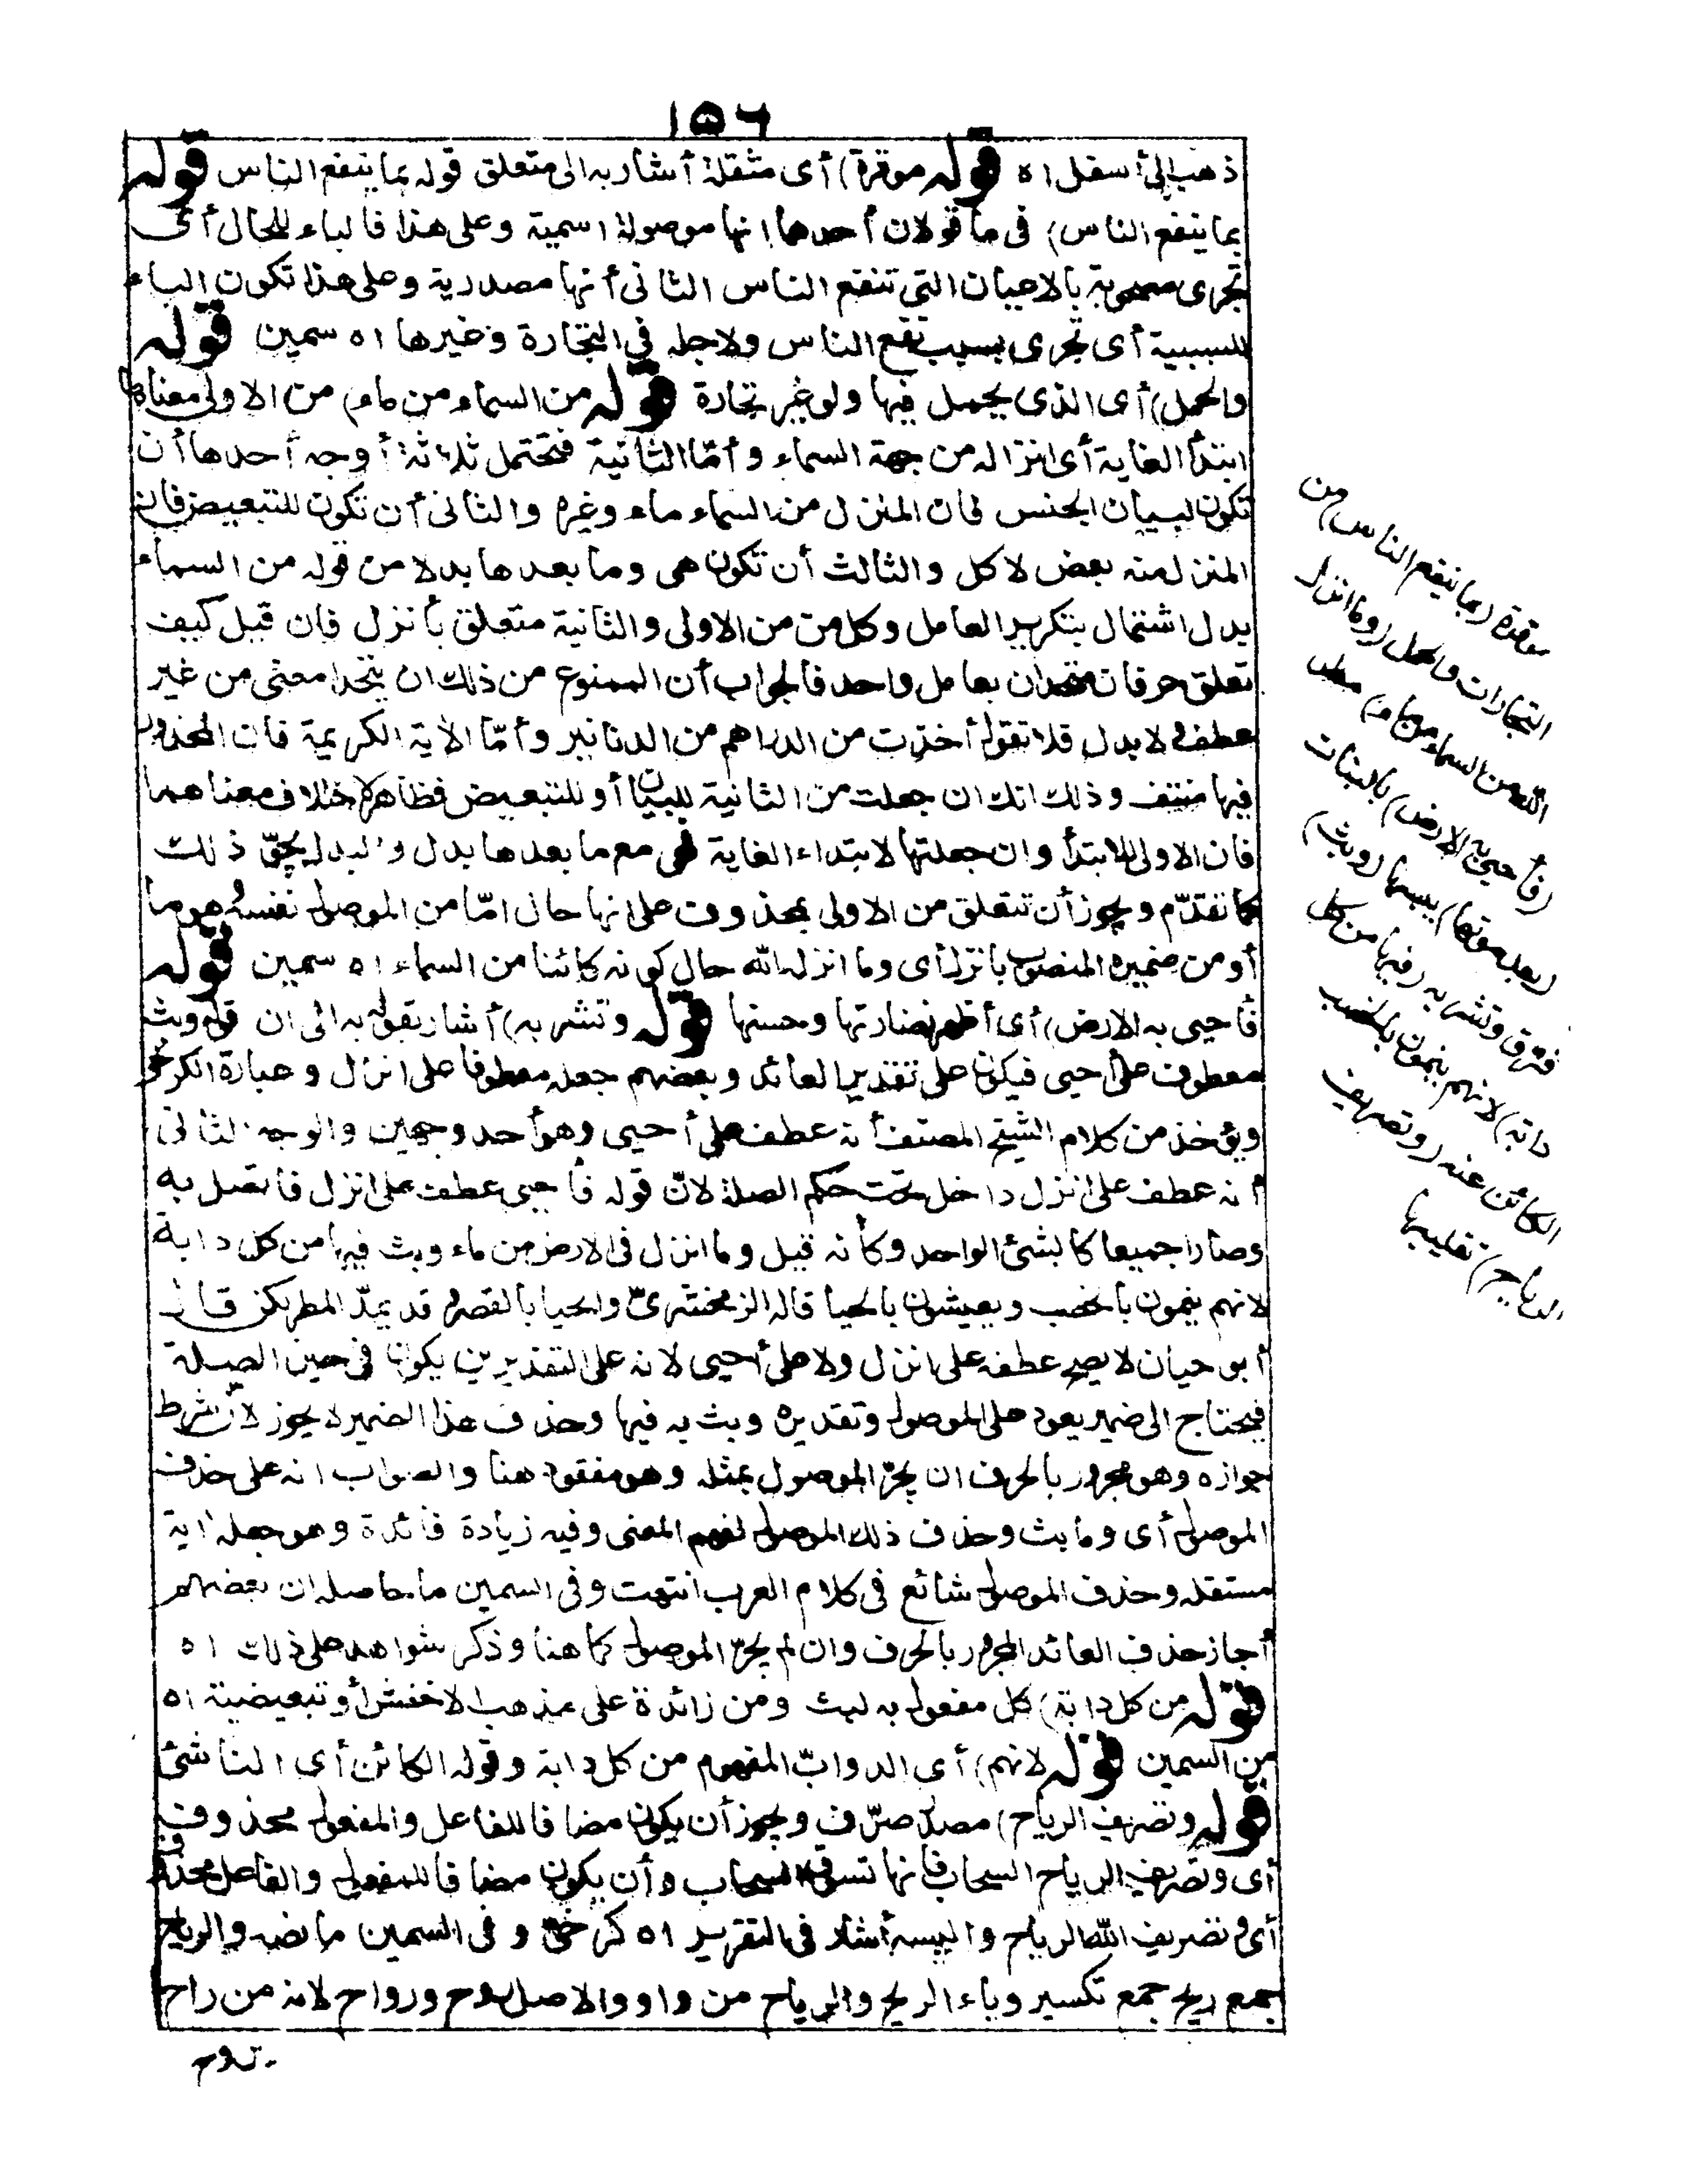 ١٥٦
ذهب إلى أسفل اه قوله موقرة) أى مثقلة أشار به الى متعلق قوله بما ينفع الناس قوله
بما ينفع الناس) فى ما قولان أحدهما انها موصولة اسمية وعلى هذا فالباء للحال أى
تجرى مصحوبة بالاعيان التى تنفع الناس الثانى أنها مصدرية وعلى هذا تكون الباء
للسببية أى تجرى بسبب نفع الناس ولاجله فى التجارة وغيرها اه سمين قوله
والحمل) أى الذى يحمل فيها ولو غير تجارة قوله من السماء من ماء) من الاولى معناها
ابتدأ الغاية أى انزاله من جهة السماء وأمّا الثانية فتحتمل ثلاثة أوجه أحدها أن
تكون لبيان الجنس فان المنزل من السماء ماء وغيره والثانى أن تكون للتبعيض فان
المنزل منه بعض لا كل والثالث أن تكون هى وما بعدها بدلا من قوله من السماء
بدل اشتمال بتكرير العامل وكل من من الاولى والثانية متعلق بأنزل فان قيل كيف
تعلق حرفان متحدان بعامل واحد فالجواب أن الممنوع من ذلك ان يتحدا معنى من غير
عطف ولا بدل فلا تقول أخذت من الدراهم من الدنانير وأمّا الآية الكريمة فان المحذور
فيها منتف وذلك انك ان جعلت من الثانية للبيان أو للتبعيض فظاهر لاختلاف معناهما
فان الاولى للابتدأ وان جعلتها لابتداء الغاية فهى مع ما بعدها بدل والبدل يجوّز ذلك
كما تقدّم ويجوز أن تتعلق من الاولى بمحذوف على انها حال امّا من الموصول نفسه وهو ما
أو من ضميره المنصوب بانزل أى وما انزله الله حال كونه كائنا من السماء اه سمين قوله
فأحيى به الارض) أى أظهر نضارتها وحسنها قوله ونشر به) أشار بقوله به الى ان قوله وبث
معطوف على أحيى فيكون على تقدير العائد وبعضهم جعله معطوفا على انزل وعبارة الكرخى
ويؤخذ من كلام الشيخ المصنف أنه عطف على أحيى وهو أحد وجهين والوجه الثانى
أنه عطف على انزل داخل تحت حكم الصلة لانّ قوله فأحيى عطف على انزل فاتصل به
وصارا جميعا كالشئ الواحد وكأنه قيل وما انزل فى الارض من ماء وبث فيها من كل دابة
لانهم ينمون بالخصب ويعيشون بالحيا قاله الزمخشرىّ والحيا بالقصر وقد يمدّ المطر لكن قال
أبو حيان لا يصح عطفه على انزل ولا على أحيى لانه على التقديرين يكون فى حيز الصلة
فيحتاج الى ضمير يعود على الموصول وتقديره وبث به فيها وحذف هذا الضمير لا يجوز لأن شرط
جوازه وهو مجرور بالحرف ان يجرّ الموصول بمثله وهو مفقود هنا والصواب انه على حذف
الموصول أى وما بث وحذف ذلك الموصول لفهم المعنى وفيه زيادة فائدة وهو جعله اية
مستقلة وحذف الموصول شائع فى كلام العرب انتهت وفى السمين ما حاصله ان بعضهم
أجاز حذف العائد المجرور بالحرف وان لم يجرّ الموصول كما هنا وذكر شواهد على ذلك اه
قوله من كل دابة) كل مفعول به لبث ومن زائدة على مذهب الاخفش أو تبعيضية اه
من السمين قوله لانهم) أى الدوابّ المفهوم من كل دابة وقوله الكائن أى الناشئ
قوله وتصريف الرياح) مصدر صرّف ويجوز أن يكون مضافا للفاعل والمفعول محذوف
أى وتصريف الرياح السحاب فانها تسوق السحاب وأن يكون مضافا للمفعول والفاعل محذوف
أى وتصريف الله الرياح واليه أشار فى التقرير اه كرخىّ وفى السمين ما نصه والرياح
جمع ريح جمع تكسير وياء الريح والرياح من واو والاصل روح ورواح لانه من راح
يروح
موقرة (بما ينفع الناس) من
التجارات والحمل (وما انزل
الله من السماء من ماء) مطر
(فأحيى به الارض) بالنبات
(بعد موتها) يبسها (وبث)
فرق ونشر به (فيها من كل
دابة) لانهم ينمون بالخصب
الكائن عنه (وتصريف
الرياح) تقليبها